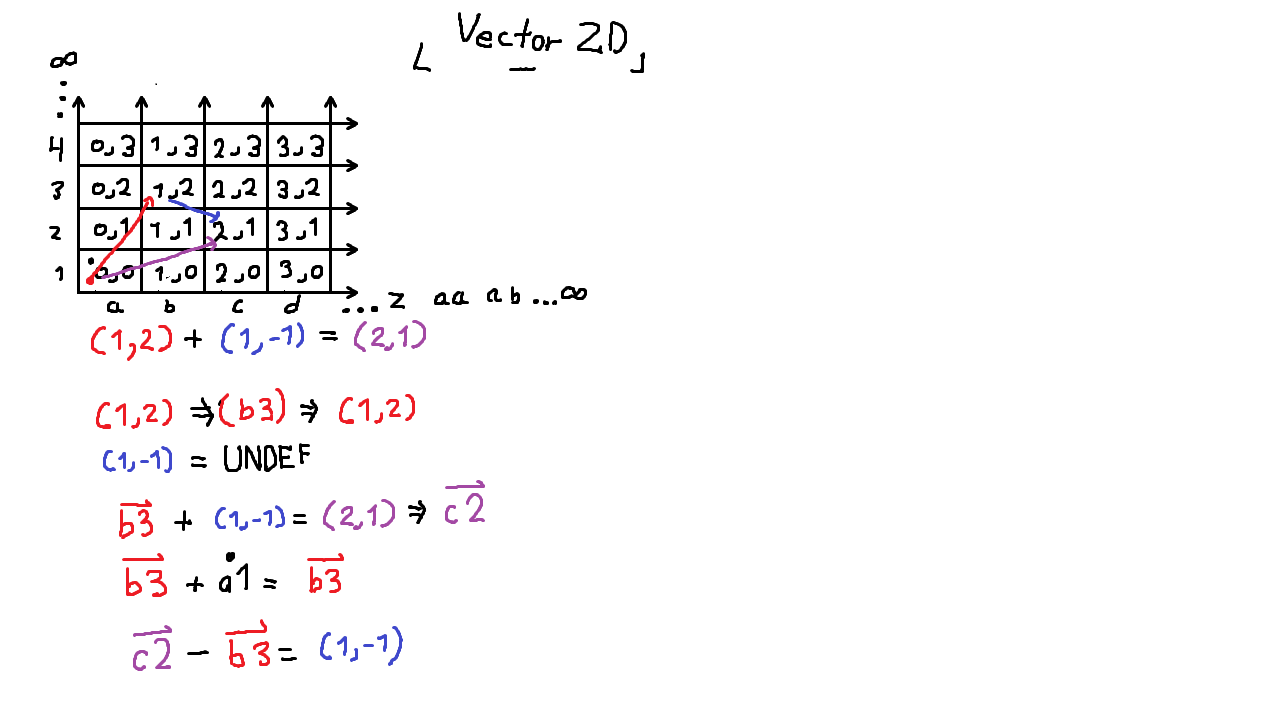 Vector 2D
∞
4 0,3 1,3 2,3 3,3
3 0,2 1,2 2,2 3,2
2 0,1 1,1 2,1 3,1
1 0,0 1,0 2,0 3,0
a b c d ... z aa ab ... ∞
(1,2) + (1,-1) = (2,1)
(1,2) ⇒ (b3) ⇒ (1,2)
(1,-1) = UNDEF
b3 + (1,-1) = (2,1) ⇒ c2
b3 + a1 = b3
c2 - b3 = (1,-1)